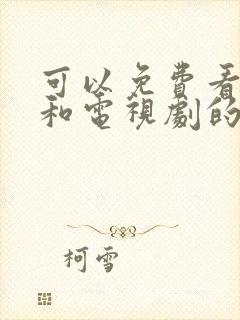 可以免費看
和電視劇的
柯雪